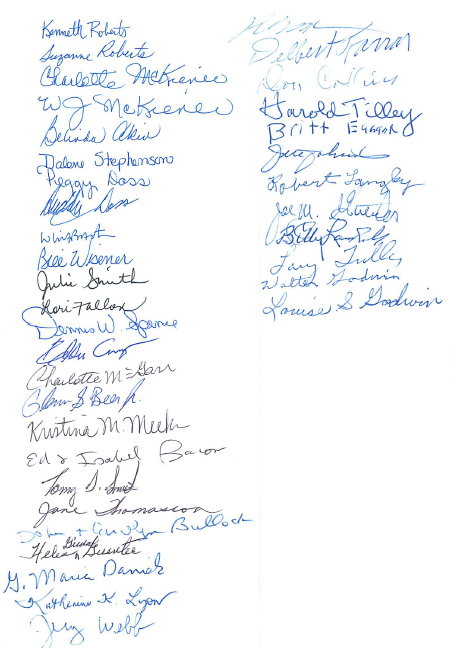 Kenneth Roberts
Suzanne Roberts
Charlotte McKienee
W J McKienee
Belinda Akin
Dalene Stephenson
Peggy Doss
Buddy Doss
Bill Wisener
Julie Smith
Lori Fallon
Dennis W. Spence
Charlotte McGarr
Glenn S Beer Jr.
Kristina M. Meek
Ed & Isabel Bacon
Tony S. Smith
Jane Thomasson
John + Carolyn Bullock
Helen
G. Maria Daniel
Katherine K. Lyon
Jerry Webb
Delbert Farrar
Don Collins
Harold Tilley
Britt
Robert Langley
Joe M.
Billy
Tilley
Walter Godwin
Louise S Goodwin